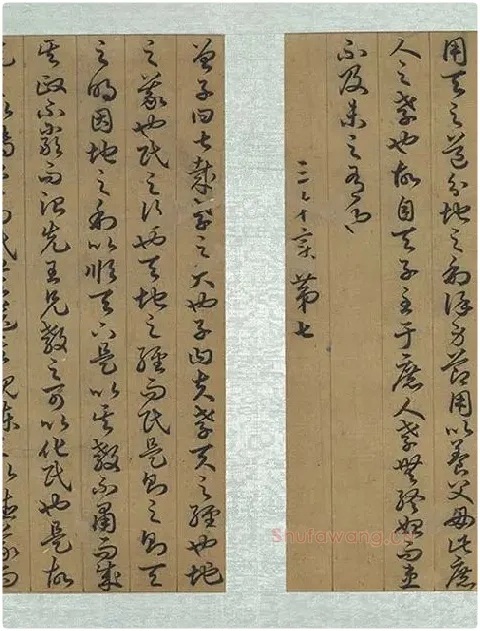 用天之道分地之利謹身節用以養父母此庶
人之孝也故自天子至于庶人孝無終始而患
不及未之有也
三才章第七
曾子曰甚哉孝之大也子曰夫孝天之經也地
之義也民之行也天地之經而民是則之則天
之明因地之利以順天下是以其教不肅而成
其政不嚴而治先王見教之可以化民也是故
Shufawang.cn